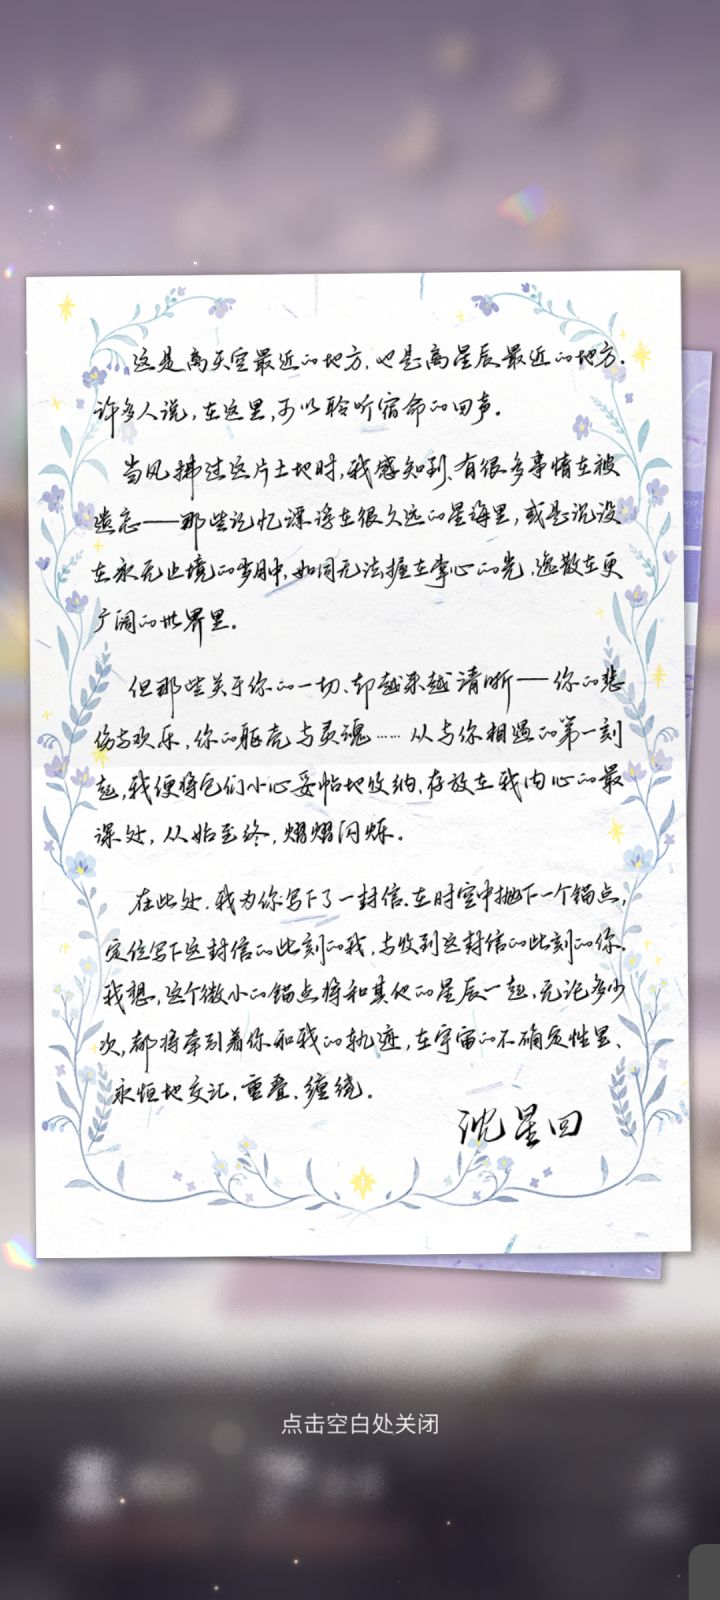 这是离天空最近的地方，也是离星辰最近的地方。
许多人说，在这里，可以聆听宿命的回声。
当风拂过这片土地时，我感知到，有很多事情在被
遗忘——那些记忆漂浮在很久远的星海里，或是说没
在永无止境的岁月中，如同无法握在掌心的光，逸散在更
广阔的世界里。
但那些关于你的一切，却越来越清晰——你的悲
伤与欢乐，你的躯壳与灵魂……从与你相遇的第一刻
起，我便将它们小心妥帖地收纳，存放在我内心的最
深处，从始至终，熠熠闪烁。
在此处，我为你写下了一封信，在时空中抛下一个锚点，
定位写下这封信的此刻的我，与收到这封信的此刻的你。
我想，这个微小的锚点将和其他的星辰一起，无论多少
次，都将牵引着你和我的轨迹，在宇宙的不确定性里，
永恒地交汇，重叠，缠绕。
沈星回
点击空白处关闭